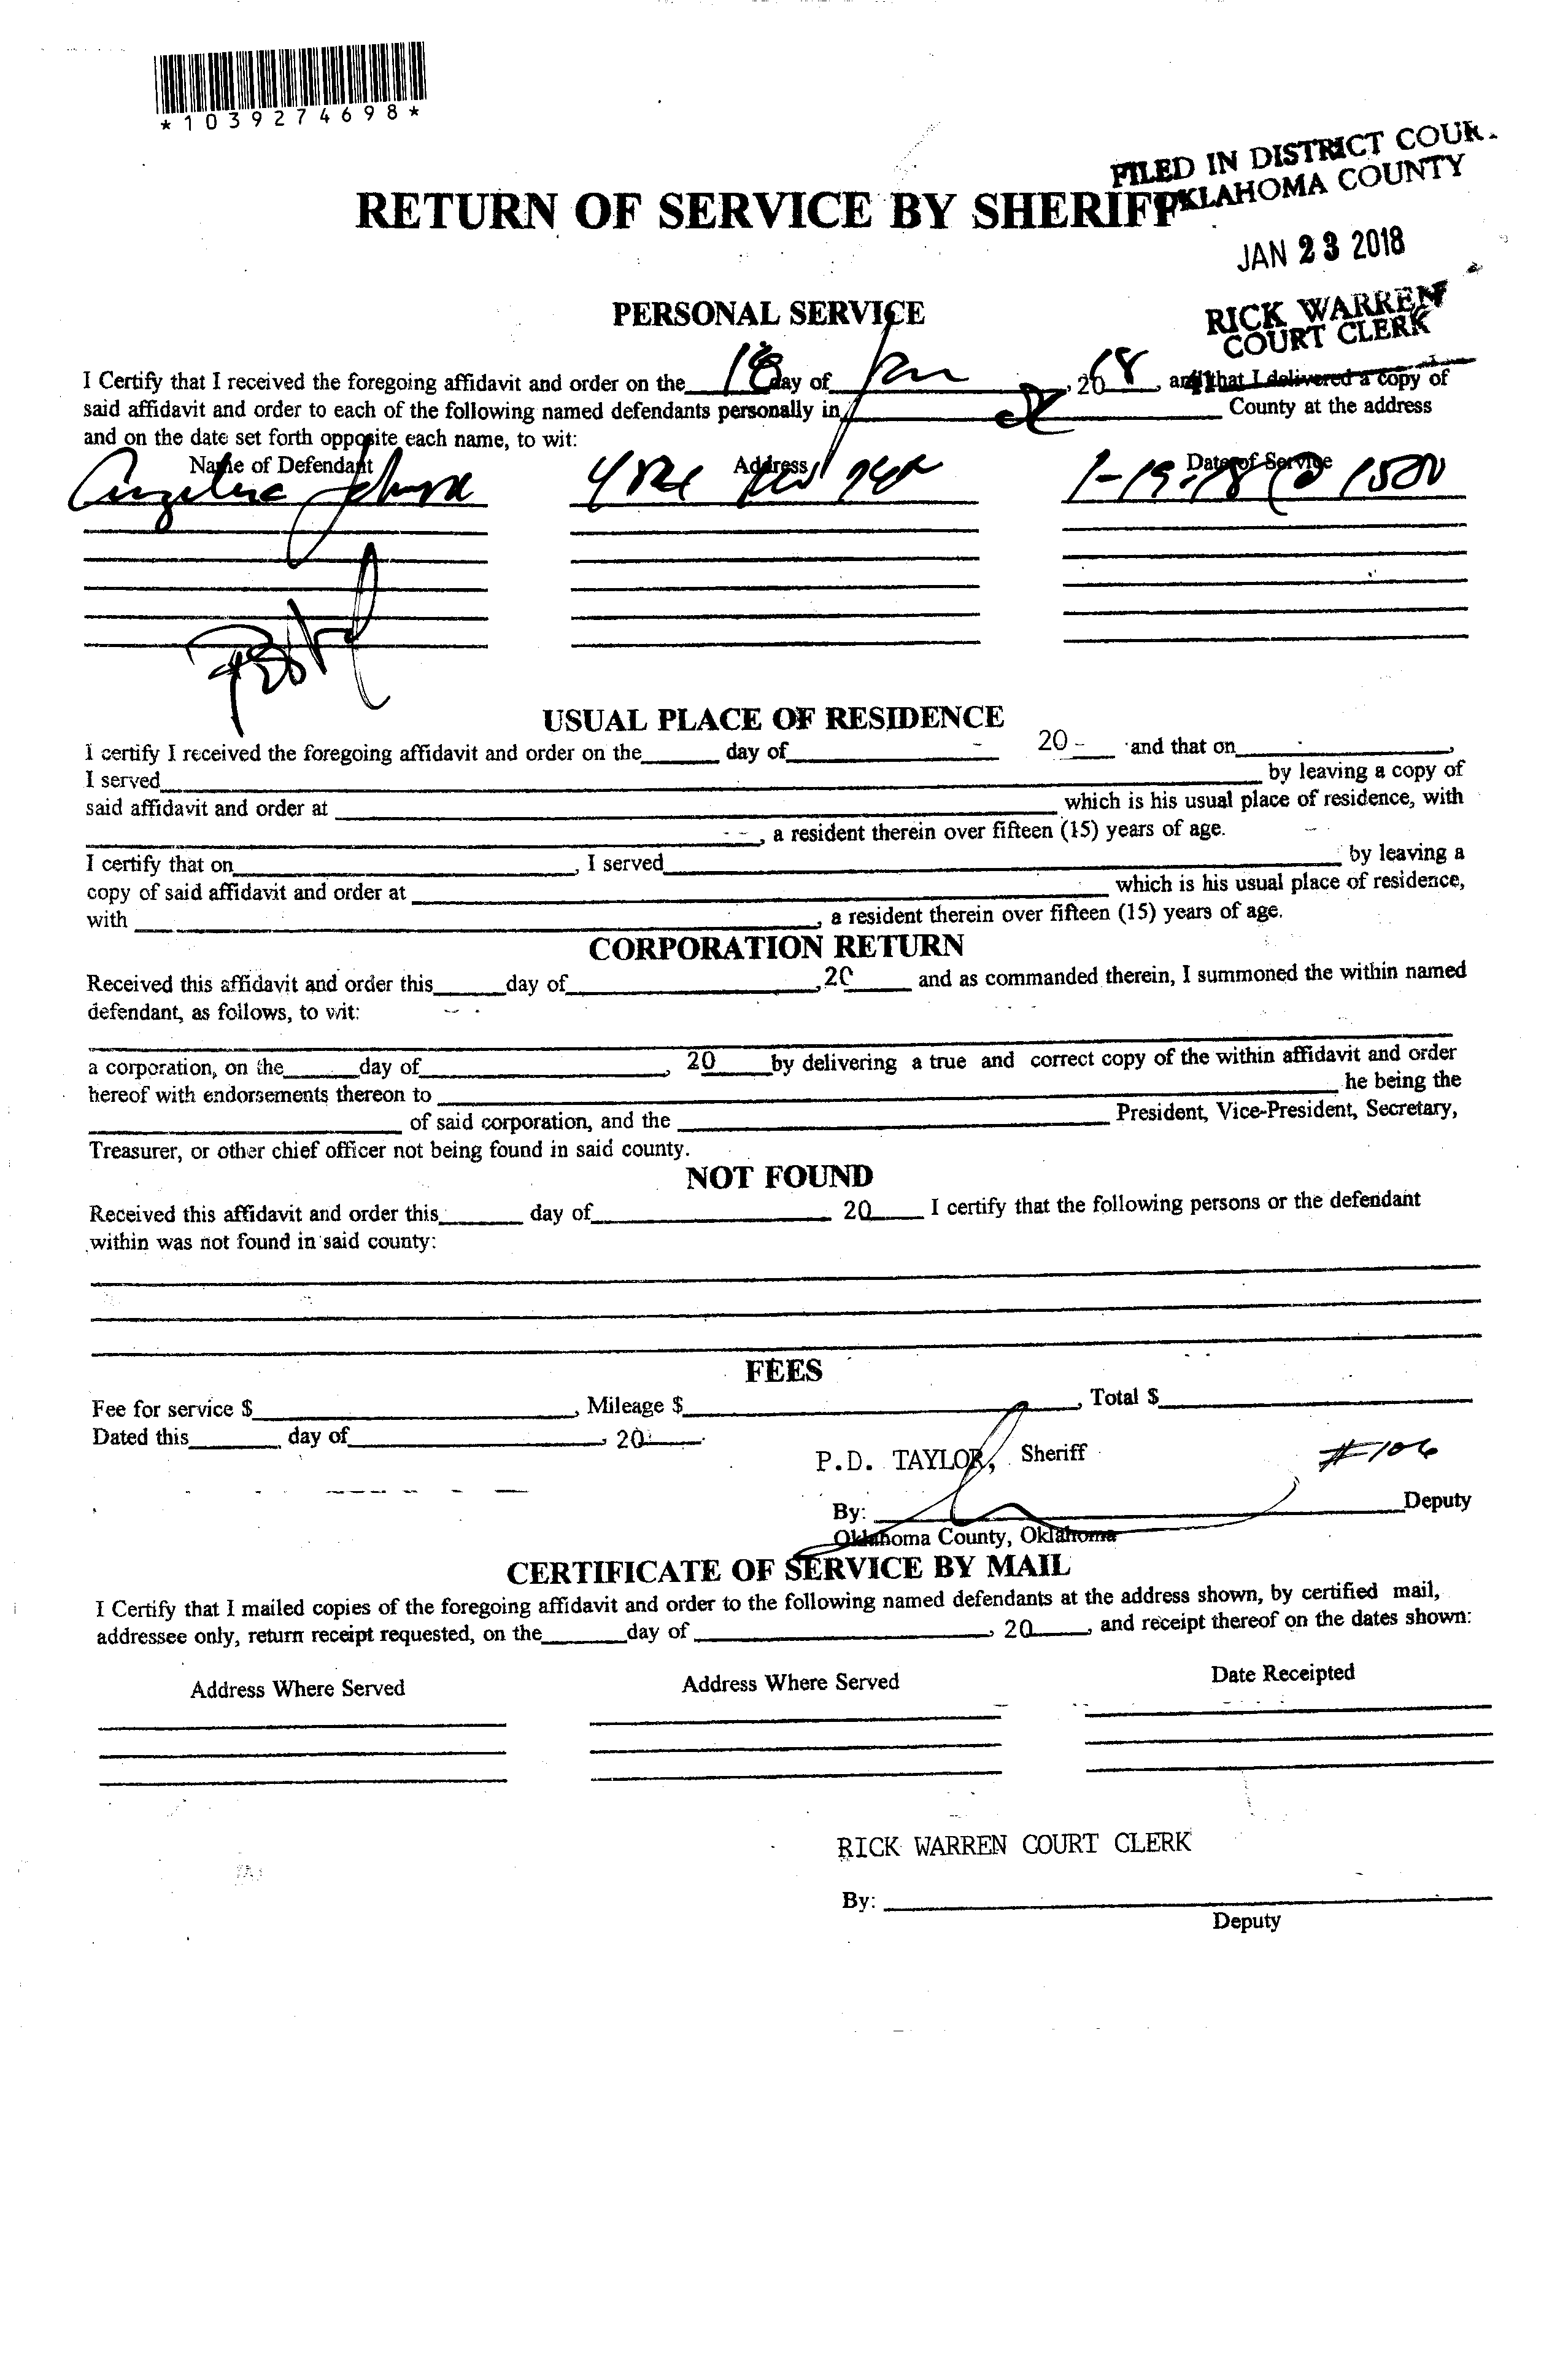 *1039274698*
FILED IN DISTRICT COUR
OKLAHOMA COUNTY
RETURN OF SERVICE BY SHERIFF
JAN 23 2018
RICK WARREN
COURT CLERK
PERSONAL SERVICE
I Certify that I received the foregoing affidavit and order on the 18 day of Jan, 2018, and that I delivered a copy of
said affidavit and order to each of the following named defendants personally in County at the address
and on the date set forth opposite each name, to wit:
Name of Defendant Address Date of Service
1-19-18 @ 1500
USUAL PLACE OF RESIDENCE
I certify I received the foregoing affidavit and order on the day of 20 and that on ,
I served by leaving a copy of
said affidavit and order at which is his usual place of residence, with
, a resident therein over fifteen (15) years of age.
I certify that on , I served by leaving a
copy of said affidavit and order at which is his usual place of residence,
with , a resident therein over fifteen (15) years of age.
CORPORATION RETURN
Received this affidavit and order this day of , 20 and as commanded therein, I summoned the within named
defendant, as follows, to wit:
a corporation, on the day of , 20 by delivering a true and correct copy of the within affidavit and order
hereof with endorsements thereon to he being the
of said corporation, and the President, Vice-President, Secretary,
Treasurer, or other chief officer not being found in said county.
NOT FOUND
Received this affidavit and order this day of 20 I certify that the following persons or the defendant
within was not found in said county:
FEES
Fee for service $ , Mileage $ , Total $
Dated this , day of , 20
P.D. TAYLOR, Sheriff #106
By: Deputy
Oklahoma County, Oklahoma
CERTIFICATE OF SERVICE BY MAIL
I Certify that I mailed copies of the foregoing affidavit and order to the following named defendants at the address shown, by certified mail,
addressee only, return receipt requested, on the day of , 20 , and receipt thereof on the dates shown:
Address Where Served Address Where Served Date Receipted
RICK WARREN COURT CLERK
By:
Deputy